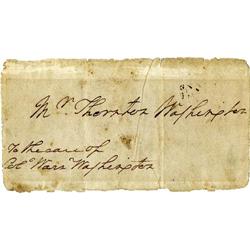 Mr. Thornton Washington
To the care of
Colo. Warn. Washington